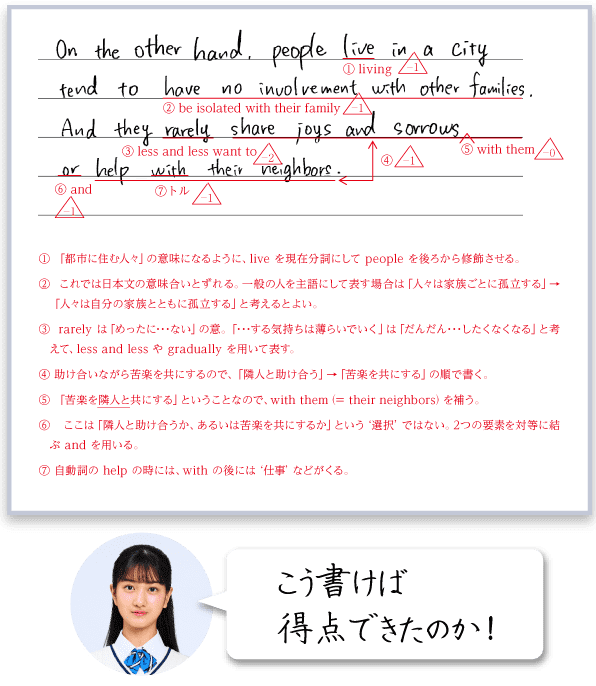 On the other hand, people live in a city
① living -1
tend to have no involvement with other families.
② be isolated with their family -1
And they rarely share joys and sorrows
③ less and less want to -2 ④ -1 ⑤ with them -0
or help with their neighbors.
⑥ and -1 ⑦トル -1
① 「都市に住む人々」の意味になるように、live を現在分詞にして people を後ろから修飾させる。
② これでは日本文の意味合いとずれる。一般の人を主語にして表す場合は「人々は家族ごとに孤立する」→
「人々は自分の家族とともに孤立する」と考えるとよい。
③ rarely は「めったに・・・ない」の意。「・・・する気持ちは薄らいでいく」は「だんだん・・・したくなくなる」と考
えて、less and less や gradually を用いて表す。
④ 助け合いながら苦楽を共にするので、「隣人と助け合う」→「苦楽を共にする」の順で書く。
⑤ 「苦楽を隣人と共にする」ということなので、with them (= their neighbors) を補う。
⑥ ここは「隣人と助け合うか、あるいは苦楽を共にするか」という ‘選択’ ではない。2つの要素を対等に結
ぶ and を用いる。
⑦ 自動詞の help の時には、with の後には ‘仕事’ などがくる。
こう書けば
得点できたのか!